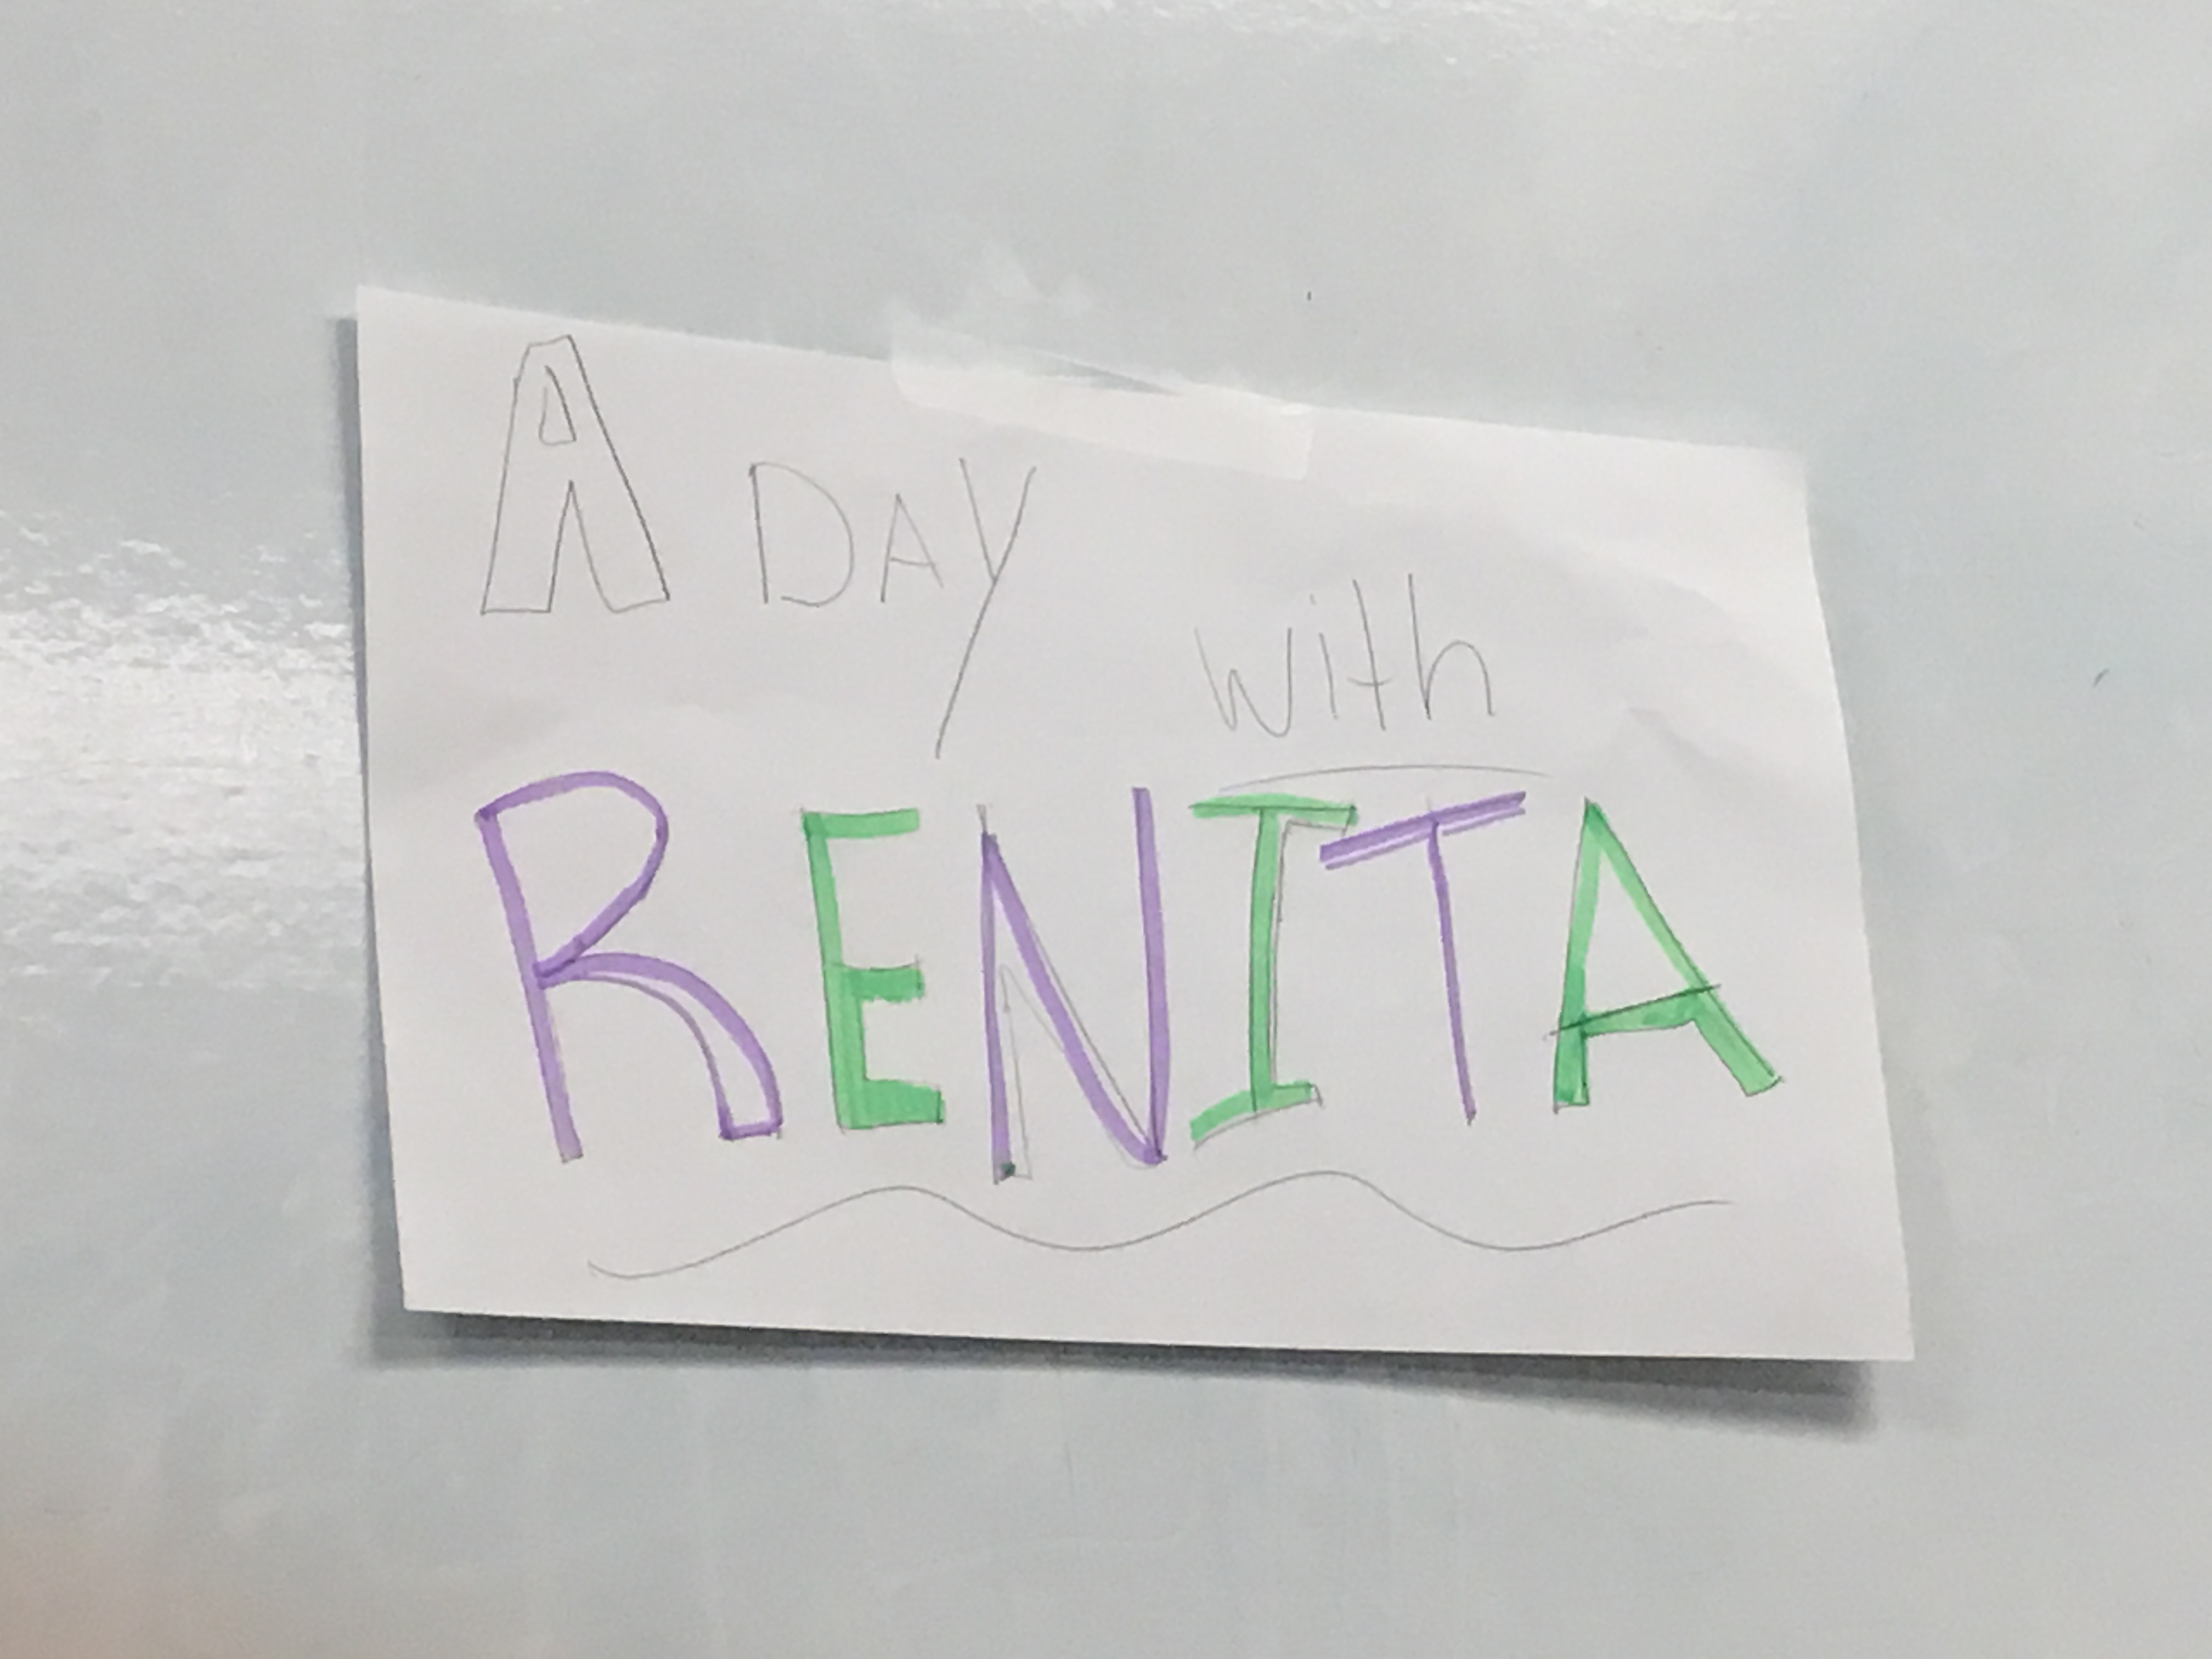 A DAY
with
RENITA